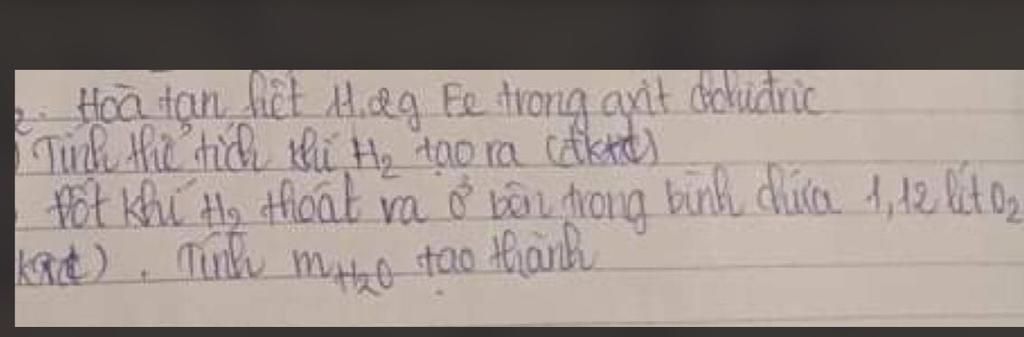 2. Hoà tan hết 11.2g Fe trong axit clohiđric
) Tính thể tích khí H₂ tạo ra (đktc)
Đốt khí H₂ thoát ra ở bên trong bình chứa 1,12 lít O₂
ktc). Tính mH₂O tạo thành